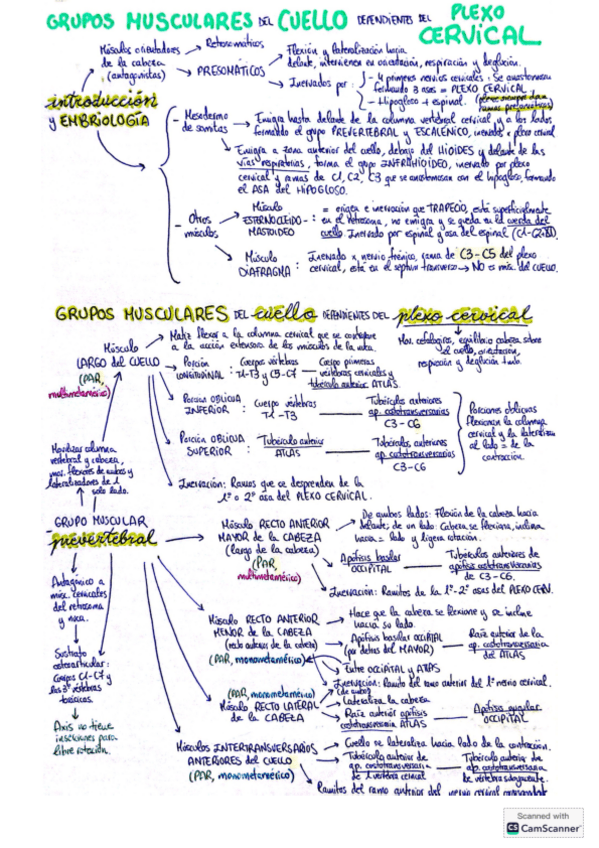 GRUPOS MUSCULARES DEL CUELLO DEPENDIENTES DEL PLEXO CERVICAL
Músculos orientadores de la cabeza (antagonistas)
Retrosomáticos
PRESOMÁTICOS
Flexión y lateralización hacia
delante, intervienen en orientación, respiración y deglución.
Inervados por:
- 4 primeros nervios cervicales. Se anastomosan
formando 3 asas = PLEXO CERVICAL.
- Hipogloso + espinal.
introducción
y EMBRIOLOGÍA
- Mesodermo de somitas
Emigra hasta delante de la columna vertebral cervical y a los lados
formando el grupo PREVERTEBRAL y ESCALÉNICO, inervados x plexo cervical
Emigra a zona anterior del cuello, debajo del HIOIDES y delante de las
vías respiratorias, forma el grupo INFRAHIOIDEO, inervado por plexo
cervical y ramas de C1, C2, C3 que se anastomosan con el hipogloso, formando
el ASA del HIPOGLOSO.
- Otros músculos
Músculo ESTERNOCLEIDOMASTOIDEO:
= origen e inervación que TRAPECIO, está superficialmente
en el retrosoma, no emigra y se queda en la
cuello. Inervado por espinal y asa del espinal
Músculo DIAFRAGMA:
Inervado x nervio frénico, rama de C3-C5 del plexo
cervical, está en el septum transverso → NO es mús. del CUELLO.
GRUPOS MUSCULARES DEL cuello DEPENDIENTES DEL plexo cervical
Mov. cefalogiros, equilibrio cabeza sobre
el cuello, orientación,
respiración y deglución
Músculo LARGO del CUELLO
(PAR, multimetamérico)
Matiz flexor a la columna cervical que se contrapone
a la acción extensora de los músculos de la nuca.
Porción LONGITUDINAL:
Cuerpos vértebras T1-T3 y C5-C7
Cuerpo primeras vértebras cervicales y tubérculo anterior ATLAS.
Porción OBLICUA INFERIOR:
Cuerpo vértebras T1-T3
Tubérculos anteriores ap. costotransversarias C3-C6
Porción OBLICUA SUPERIOR:
Tubérculo anterior ATLAS
Tubérculos anteriores ap. costotransversarias C3-C6
Porciones oblicuas
flexionan la columna
cervical y la lateralizan
al lado = de la
contracción.
Inervación: Ramos que se desprenden de la
1º o 2º asa del PLEXO CERVICAL.
Movilizar columna
vertebral y cabeza,
mov. flexores de ambos y
lateralizadores de 1
solo lado.
GRUPO MUSCULAR
prevertebral
Antagónico a
mús. cervicales
del retrosoma
y nuca.
Sustrato
osteoarticular:
Cuerpos C1-C7 y
las 3 1º vértebras
torácicas.
Axis no tiene
inserciones para
libre rotación.
Músculo RECTO ANTERIOR
MAYOR de la CABEZA
(largo de la cabeza)
(PAR, multimetamérico)
De ambos lados: Flexión de la cabeza hacia
delante; de un lado: Cabeza se flexiona, inclina
hacia = lado y ligera rotación.
Apófisis basilar OCCIPITAL
Tubérculos anteriores de apófisis costotransversarias de C3-C6.
Inervación: Ramitos de la 1º-2º asas del PLEXO CERV.
Músculo RECTO ANTERIOR
MENOR de la CABEZA
(recto anterior de la cabeza)
(PAR, monometamérico)
Hace que la cabeza se flexione y se incline
hacia su lado.
Apófisis basilar OCCIPITAL (por detrás del MAYOR)
Raíz anterior de la ap. costotransversaria del ATLAS
Entre OCCIPITAL y ATLAS
Inervación: Ramito del ramo anterior del 1º nervio cervical.
(de ambos)
(PAR, monometamérico)
Músculo RECTO LATERAL
de la CABEZA
Lateraliza la cabeza
Raíz anterior apófisis costotransversaria ATLAS
Apófisis yugular OCCIPITAL
Músculos INTERTRANSVERSARIOS
ANTERIORES del CUELLO
(PAR, monometamérico)
Cuello se lateraliza hacia lado de la contracción.
Tubérculo anterior de ap. costotransversaria de 1 vértebra cervical
Tubérculo anterior de ap. costotransversaria de vértebra subyacente.
Ramitos del ramo anterior del nervio cervical
Scanned with
CS CamScanner